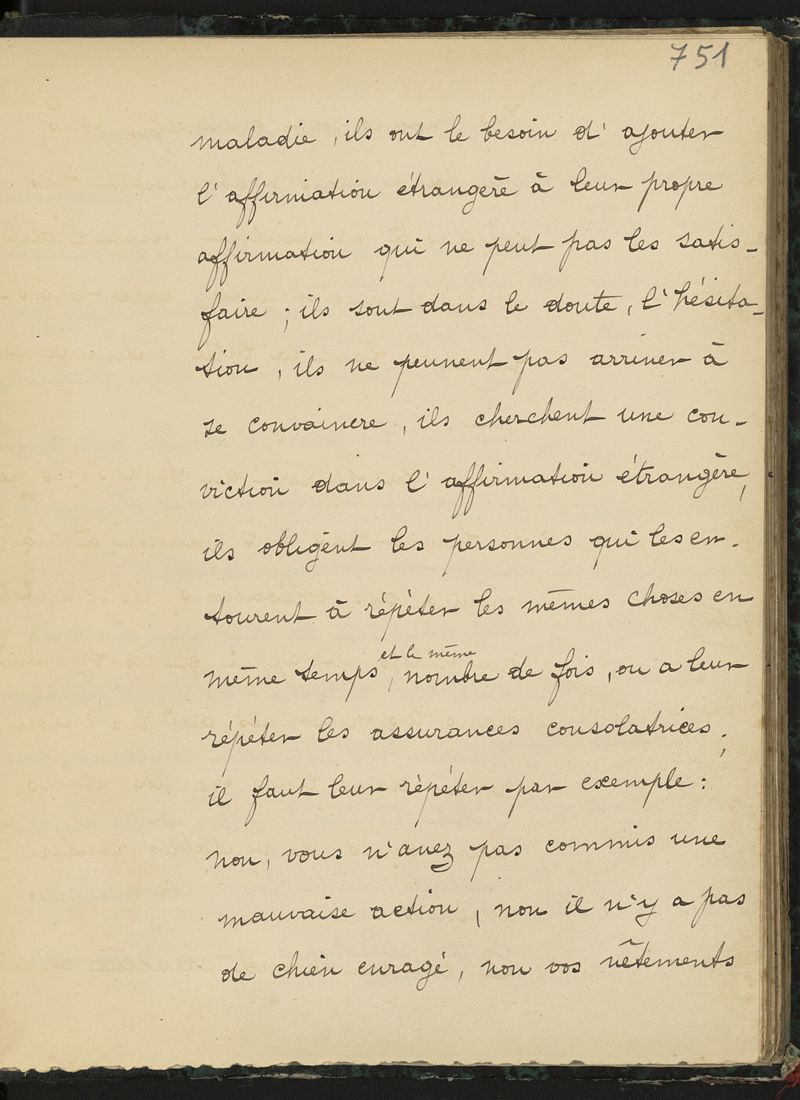 751
maladie, ils ont le besoin d'ajouter
l'affirmation étrangère à leur propre
affirmation qui ne peut pas les satis-
faire ; ils sont dans le doute, l'hésita-
tion, ils ne peuvent pas arriver à
se convaincre, ils cherchent une con-
viction dans l'affirmation étrangère,
ils obligent les personnes qui les en-
tourent à répéter les mêmes choses en
même temps, et le même nombre de fois, ou a leur
répéter les assurances consolatrices ;
il faut leur répéter par exemple :
non, vous n'avez pas commis une
mauvaise action, non il n'y a pas
de chien enragé, non vos vêtements